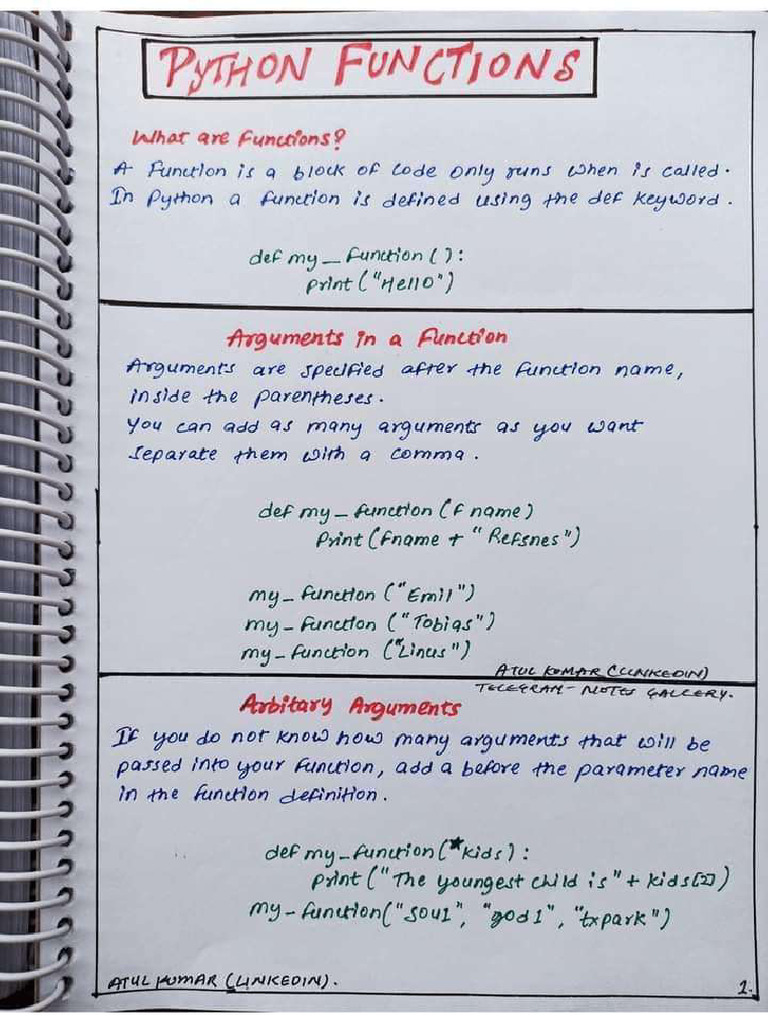 PYTHON FUNCTIONS
What are functions?
A function is a block of code only runs when is called.
In Python a function is defined using the def keyword.
def my_function():
print("Hello")
Arguments in a Function
Arguments are specified after the function name,
inside the parentheses.
You can add as many arguments as you want
separate them with a comma.
def my_function(f name)
Print(fname + "Refsnes")
my_function("Emil")
my_function("Tobias")
my_function("Linus")
ATUL KUMAR (LINKEDIN)
TELEGRAM - NOTES GALLERY.
Arbitary Arguments
If you do not know how many arguments that will be
passed into your function, add a before the parameter name
in the function definition.
def my_function(*kids):
print("The youngest child is" + kids[2])
my_function("soul", "god1", "txpark")
ATUL KUMAR (LINKEDIN).
1.